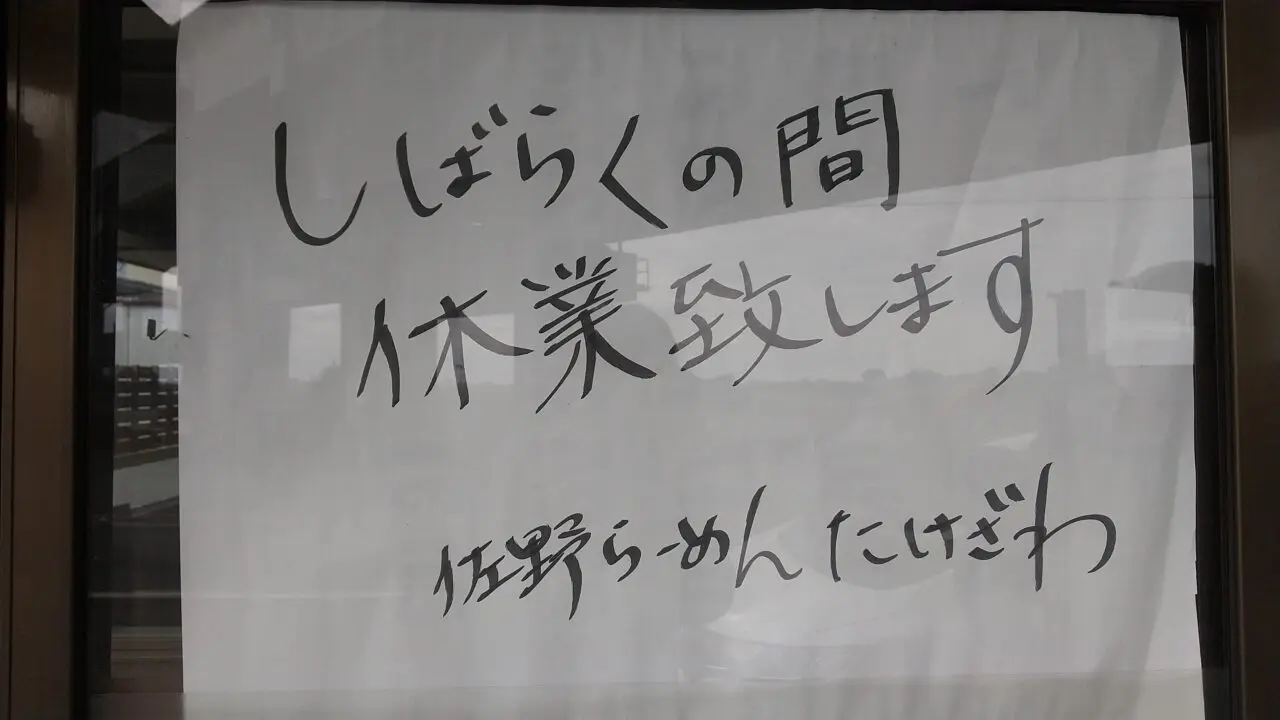 しばらくの間
休業致します
佐野らーめん たけざわ